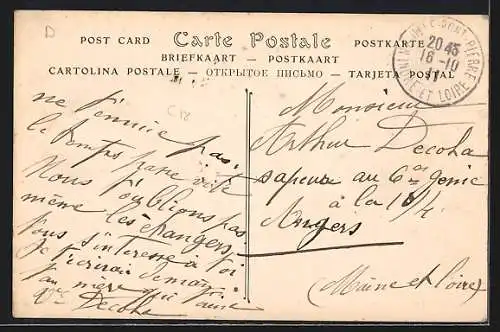 D
POST CARD Carte Postale POSTKARTE
BRIEFKAART — POSTKAART
CARTOLINA POSTALE — ОТКРЫТОЕ ПИСЬМО — TARJETA POSTAL
20 45
16 - 10
11
ET LOIRE
C18
ne t'ennuie pas.
le temps passe vite
Nous t'oublions pas,
même les étrangers
tous s'interesse à toi
Je t'écrirai demain
ta mère qui t'aime
Decoha
Monsieur
Arthur Decoha
sapeur au 6e génie
à la 18/4
Angers
(Maine et Loire)